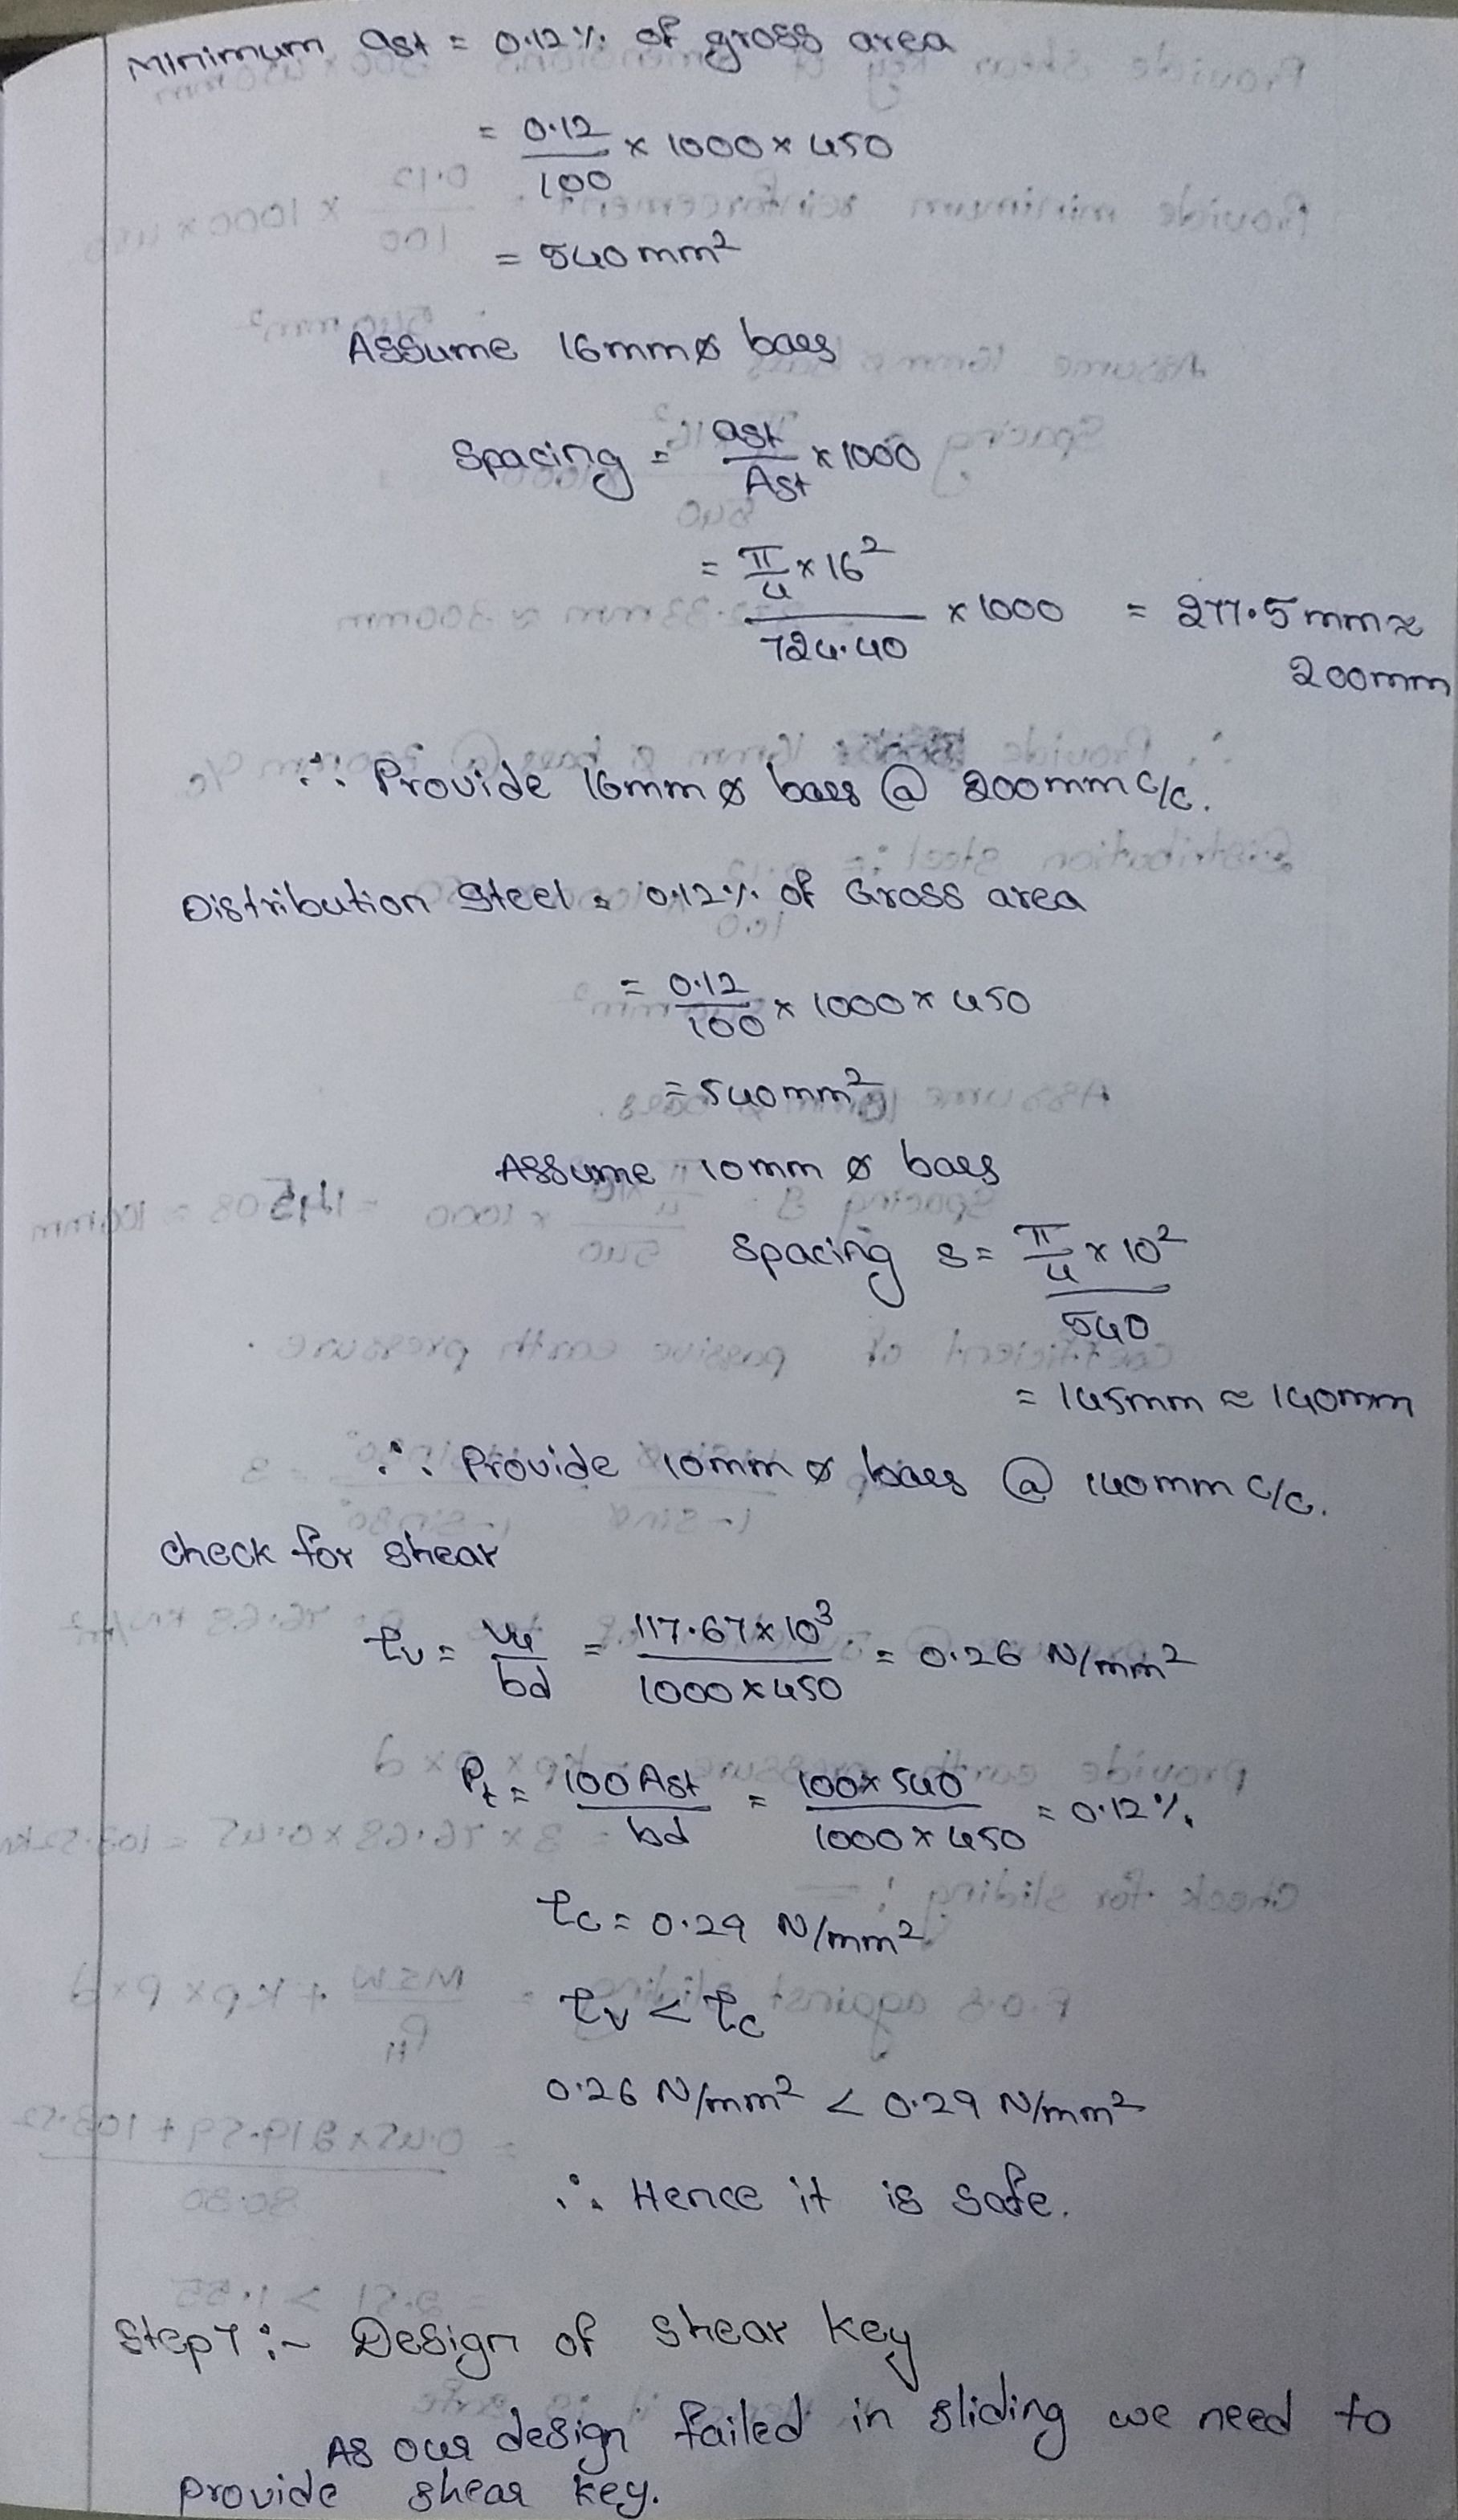 Minimum ast = 0.12% of gross area
= 0.12/100 × 1000 × 450
= 540 mm²
Assume 16mm ø bars
Spacing = ast/Ast × 1000
= π/4 × 16² / 724.40 × 1000 = 277.5 mm ≈
200mm
∴ Provide 16mm ø bars @ 200mm c/c.
Distribution Steel = 0.12% of Gross area
= 0.12/100 × 1000 × 450
= 540mm²
Assume 10mm ø bars
Spacing S = π/4 × 10² / 540
= 145mm ≈ 140mm
∴ Provide 10mm ø bars @ 140mm c/c.
check for shear
τv = Vu/bd = 117.67 × 10³ / 1000 × 450 = 0.26 N/mm²
Pt = 100 Ast/bd = 100 × 540 / 1000 × 450 = 0.12%
τc = 0.29 N/mm²
τv < τc
0.26 N/mm² < 0.29 N/mm²
∴ Hence it is safe.
Step 7 :- Design of shear key
As our design failed in sliding we need to
provide shear key.